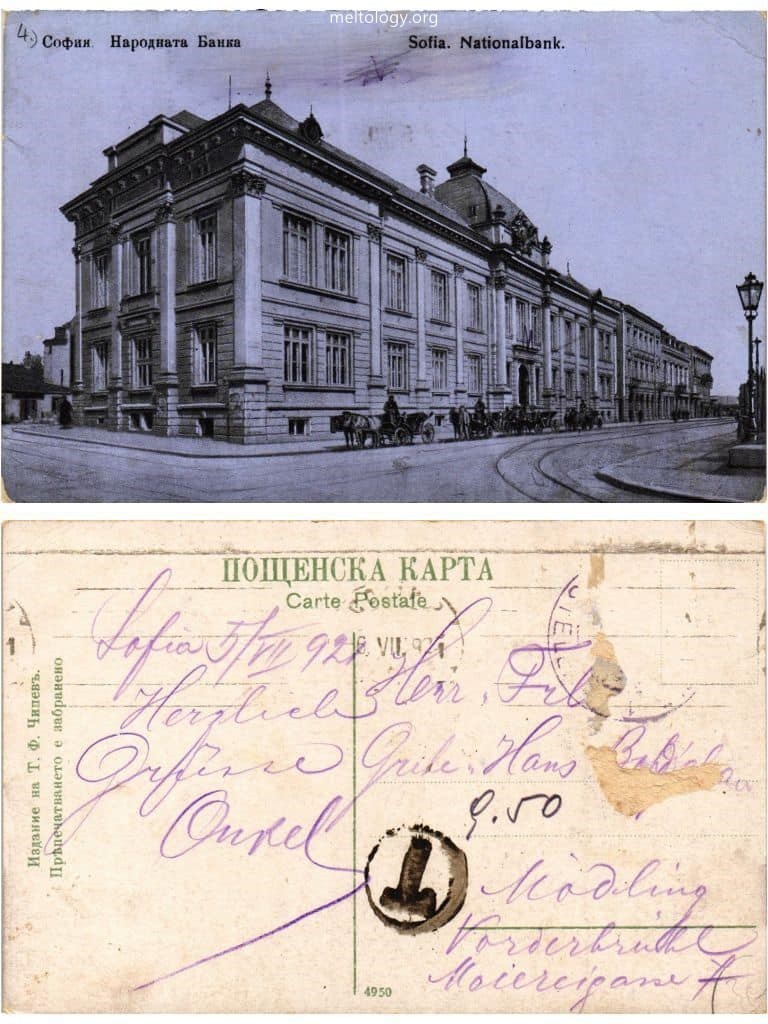 meltology.org
4.)
София. Народната Банка
Sofia. Nationalbank.
ПОЩЕНСКА КАРТА
Carte Postale
Sofia 5/VII 921
VII. 921
Herzliche
Grüsse
Onkel
Herr, Frl
Grete, Hans
9.50
T
Mödling
Vorderbrühl
Meiereigasse
Издание на Т. Ф. Чипевъ.
Прѣпечатването е забранено
4950